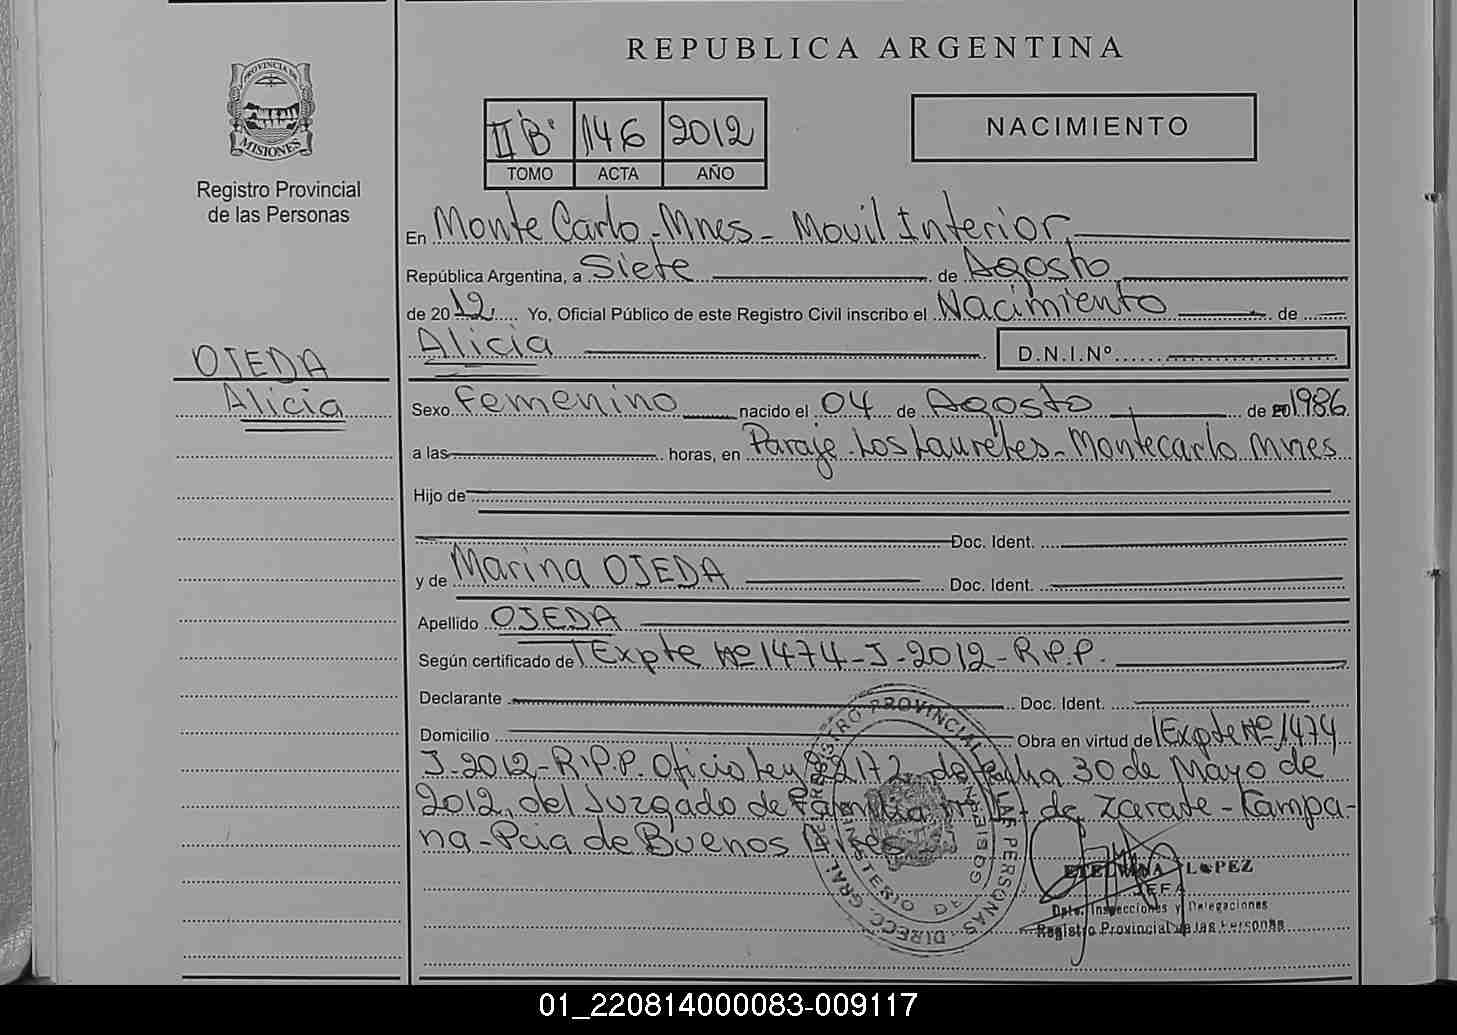 REPUBLICA ARGENTINA
PROVINCIA DE
MISIONES
Registro Provincial
de las Personas
II "B" 146 2012
TOMO ACTA AÑO
NACIMIENTO
En Monte Carlo - Mnes - Movil Interior
República Argentina, a Siete de Agosto
de 2012 Yo, Oficial Público de este Registro Civil inscribo el Nacimiento de
Alicia D.N.I.Nº
OJEDA
Alicia
Sexo Femenino nacido el 04 de Agosto de 1986
a las horas, en Paraje Los Laureles - Montecarlo Mnes
Hijo de
Doc. Ident.
y de Marina OJEDA Doc. Ident.
Apellido OJEDA
Según certificado de Expte Nº 1474-J-2012-R.P.P.
Declarante Doc. Ident.
Domicilio Obra en virtud de Expte Nº 1474
J-2012-R.P.P. Oficio Ley 22172 de fecha 30 de Mayo de
2012, del Juzgado de Familia de Zarate - Campa-
na - Pcia de Buenos Aires
DIRECC. GRAL. DE REGISTRO PROVINCIAL DE LAS PERSONAS
MINISTERIO DE GOBIERNO
ETELVINA LOPEZ
JEFA
Dpto. Inspecciones y Delegaciones
Registro Provincial de las Personas
01_220814000083-009117